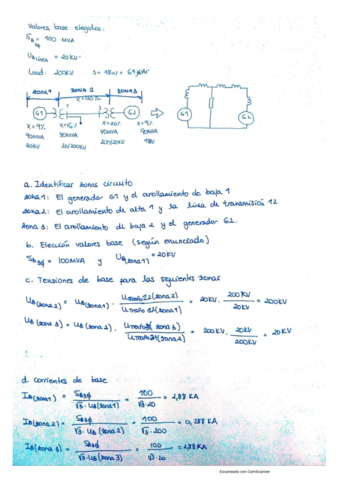 Valores base elegidos:
S_B3ϕ = 100 MVA
= 20 KV
Load: 200KV S =
ZONA 1 ZONA 2 ZONA 3
G1 G2 G1 G2
X=9% X=20% X=9%
90MVA 80MVA 80MVA 90MVA
20KV 20/200KV 200/20KV
a. Identificar zonas circuito
zona 1: El generador G1 y el arollamiento de baja 1
zona 2: El arollamiento de alta 1 y la linea de transmisión 12
zona 3: El arollamiento de baja 2 y el generador G2.
b. Elección valores base (según enunciado)
S_B3ϕ = 100MVA y U_B(zona 1) = 20KV
c. Tensiones de base para las siguientes zonas
U_B(zona 2) = U_B(zona 1) · = 20KV · 200KV / 20KV = 200KV
U_B(zona 3) = U_B(zona 2) · = 200KV · 20KV / 200KV = 20KV
d. corrientes de base
I_B(zona 1) = S_B3ϕ / √3 · U_B(zona 1) = 100 / √3 · 20 = 2,88 KA
I_B(zona 2) = S_B3ϕ / √3 · U_B(zona 2) = 100 / √3 · 200 = 0,288 KA
I_B(zona 3) = S_B3ϕ / √3 · U_B(zona 3) = 100 / √3 · 20 = 2,88 KA
Escaneado con CamScanner